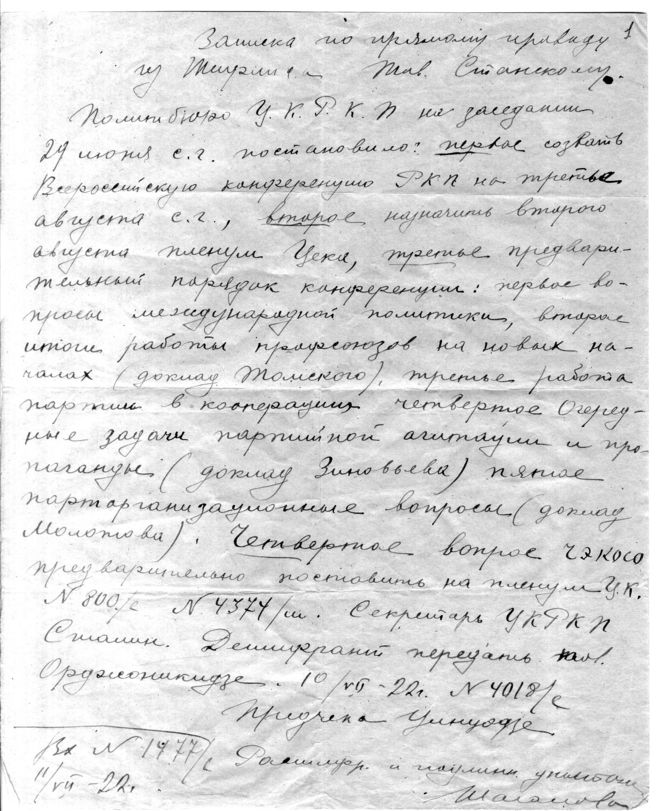 1
Записка по прямому проводу
из Тифлиса Тов. Станскому.
Политбюро Ц.К.Р.К.П на заседании
29 июня с.г. постановило: первое созвать
Всероссийскую конференцию РКП на третье
августа с.г., второе назначить второго
августа пленум Цека, третье предвари-
тельный порядок конференции: первое во-
просы международной политики, второе
итоги работы профсоюзов на новых на-
чалах (доклад Томского), третье работа
партии в кооперациях четвертое Очеред-
ные задачи партийной агитации и про-
паганды (доклад Зиновьева) пятое
парторганизационные вопросы (доклад
Молотова). Четвертое вопрос ЧЭКОСО
предварительно поставить на пленум Ц.К.
N 800/с N 4374/ш. Секретарь ЦКРКП
Сталин. Дешифрант передать тов.
Орджоникидзе. 10/VII-22г. N 4018/с
Предчека Цинцадзе
Вх N 1477/с Расшифр. и подлин. уничтож
11/VII-22г.